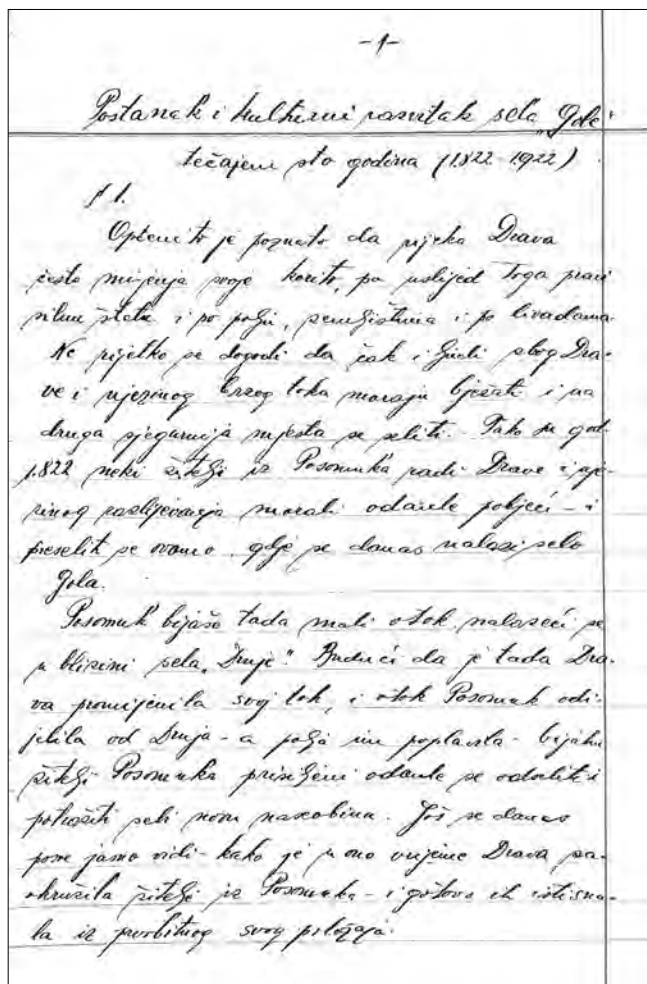 -1-
Postanak i kulturni razvitak sela "Gole"
tečajem sto godina (1822-1922)
§ 1.
Općenito je poznato da rijeka Drava
često mijenja svoje korito, pa uslijed toga pravi
silne štete i po polju, zemljištima i po livadama.
Ne rijetko se dogodi da čak i ljudi zbog Dra-
ve i njezinog brzog toka moraju bježati i na
druga sjegurnija mjesta se seliti. Tako su god.
1822 neki žitelji iz Posomuka radi Drave i nje-
zinog razlijevanja morali odavle pobjeći - i
preselit se ovamo, gdje se danas nalazi selo
Gola.
Posomuk bijaše tada mali otok nalazeći se
u blizini sela "Ždruje". Budući da je tada Dra-
va promijenila svoj tok, i otok Posomuk odi-
jelila od - a polja im poplavila - bijahu
žitelji Posomuka prisiljeni odavle se odaliti i
potražiti sebi novu naseobinu. Još se danas
posve jasno vidi - kako je u ono vrijeme Drava za-
okružila žitelje iz Posomuka - i gotovo ih istisnu-
la iz prvobitnog svog položaja.